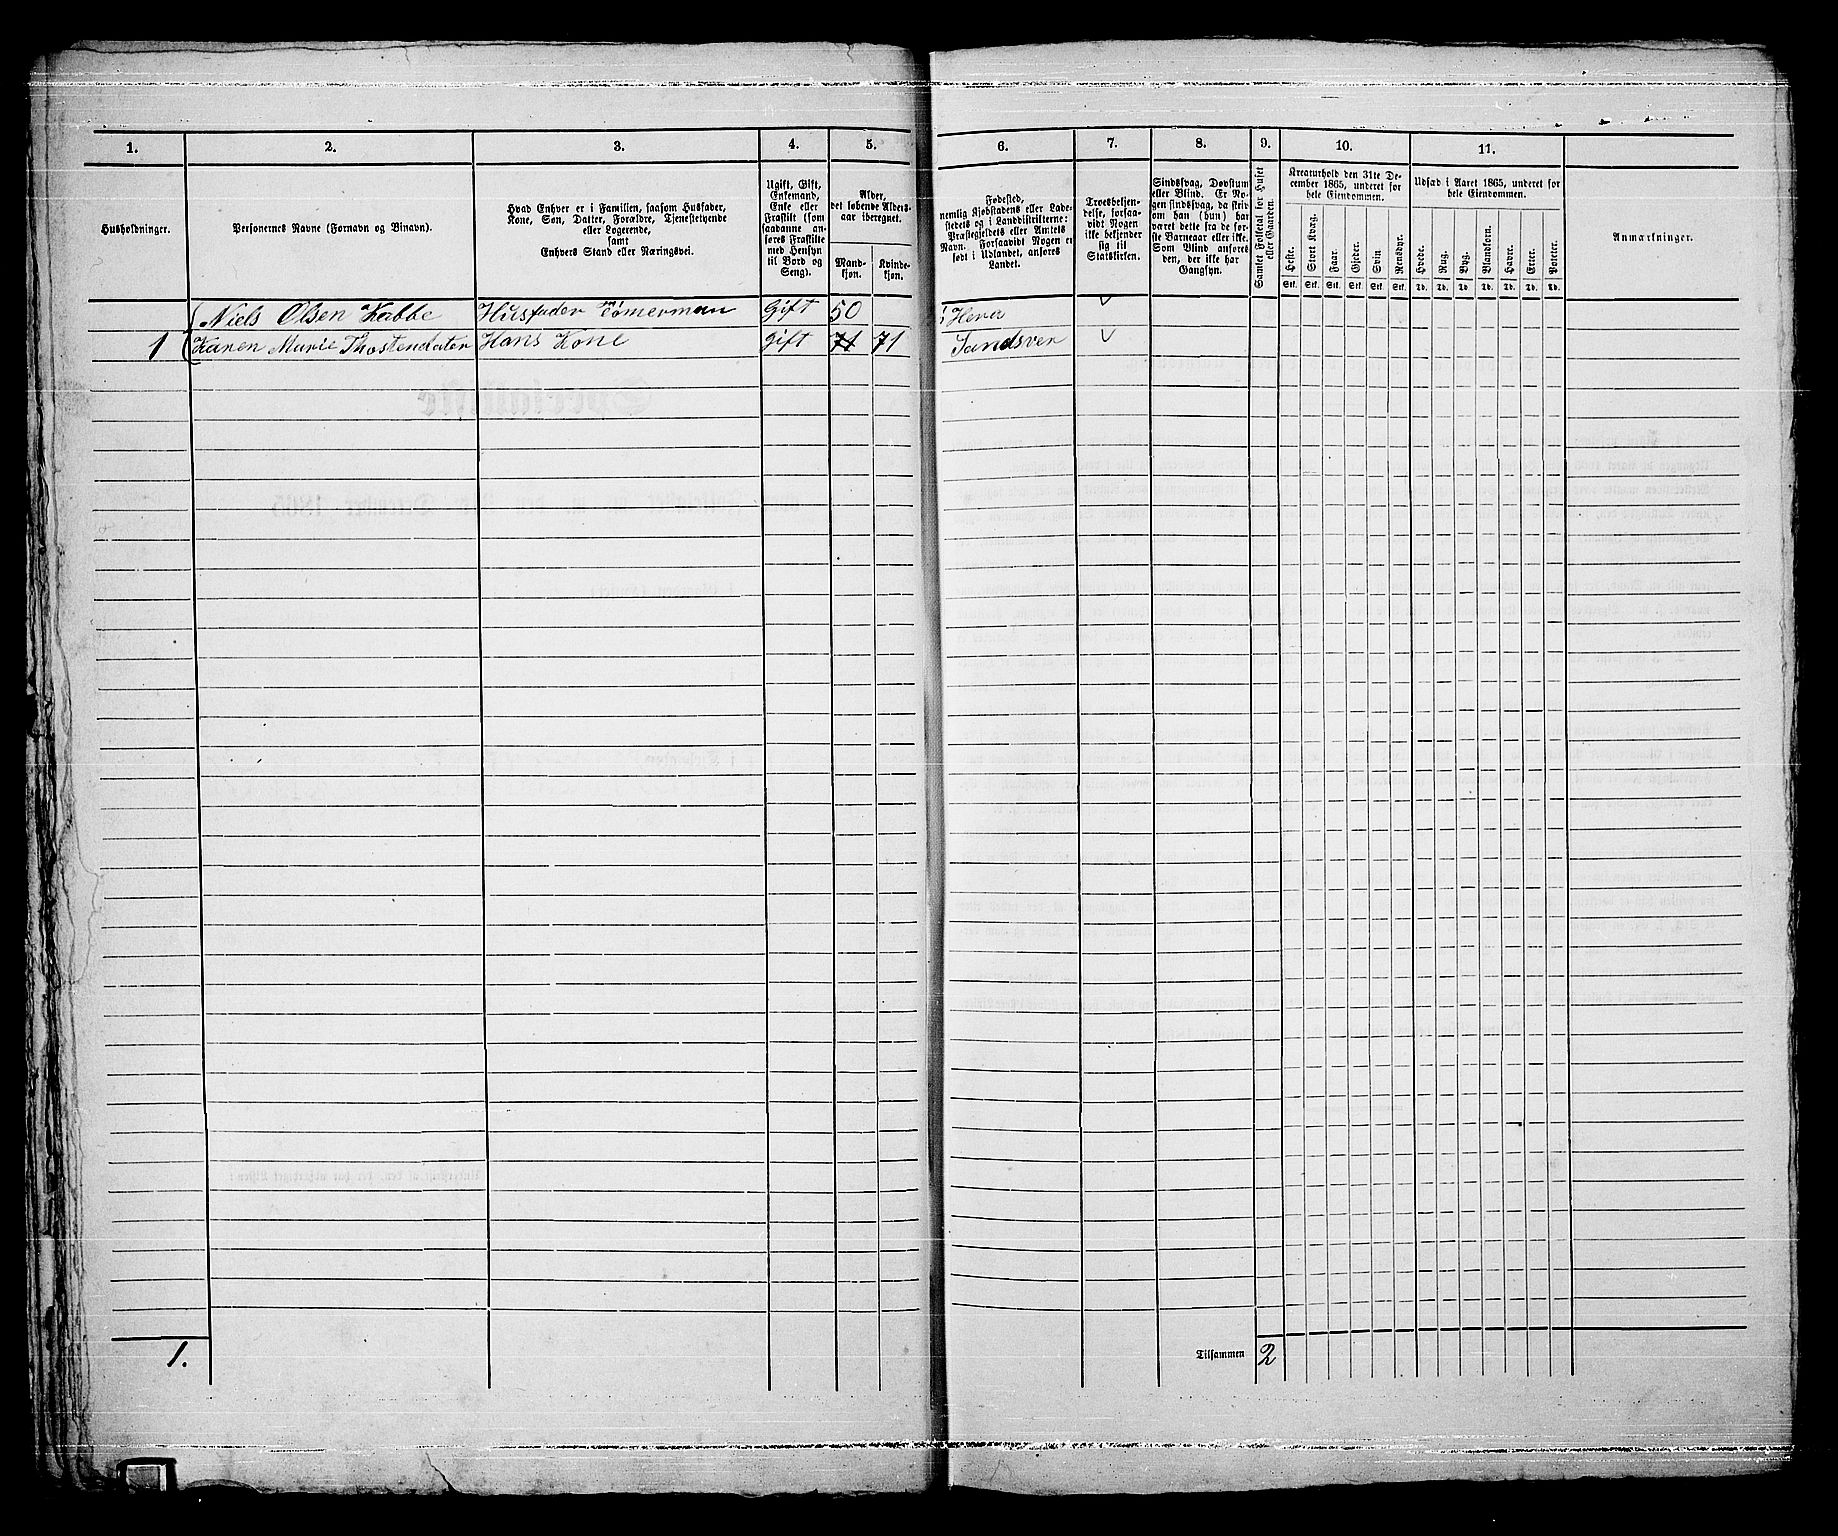 1. 2. 3. 4. 5. 6. 7. 8. 9. 10. 11.
Husholdninger.
Personernes Navne (Fornavn og Binavn).
Hvad Enhver er i Familien, saasom Husfader,
Kone, Søn, Datter, Forældre, Tjenestetyende
eller Logerende,
samt
Enhvers Stand eller Næringsvei.
Ugift, Gift,
Enkemand,
Enke eller
Fraskilt (som
saadanne an-
føres Fraskilte
med Hensyn
til Bord og
Seng).
Alder,
det løbende Alders-
aar iberegnet.
Mand-
kjøn.
Kvinde-
kjøn.
Fødested,
nemlig Kjøbstadens eller Lade-
stedets og i Landdistrikterne:
Præstegjeldets eller Amtets
Navn. Forsaavidt Nogen er
født i Udlandet, anføres
Landet.
Troesbekjen-
delse, forsaa-
vidt Nogen
ikke bekjender
sig til
Statskirken.
Sindssvag, Døvstum
eller Blind. Er No-
gen sindssvag, da skriv
om han (hun) har
været dette fra de før-
ste Barneaar eller ikke.
Som Blind anføres
den, der ikke har
Gangsyn.
Samlet Folketal for Huset
eller Gaarden.
Kreaturhold den 31te De-
cember 1865, underet for
hele Eiendommen.
Heste. Stort Kvæg. Faar. Gjeder. Svin Rensdyr.
Stk. Stk. Stk. Stk. Stk. Stk.
Udsæd i Aaret 1865, underet for
hele Eiendommen.
Hvede. Rug. Byg. Blandkorn. Havre. Erter. Poteter.
Td. Td. Td. Td. Td. Td. Td.
Anmærkninger.
Niels Olsen Labbe Husfader Tömerman Gift 50
1 Karen Marie Thostendater Hans Kone Gift 71 71 Sandsver
1.
Tilsammen 2